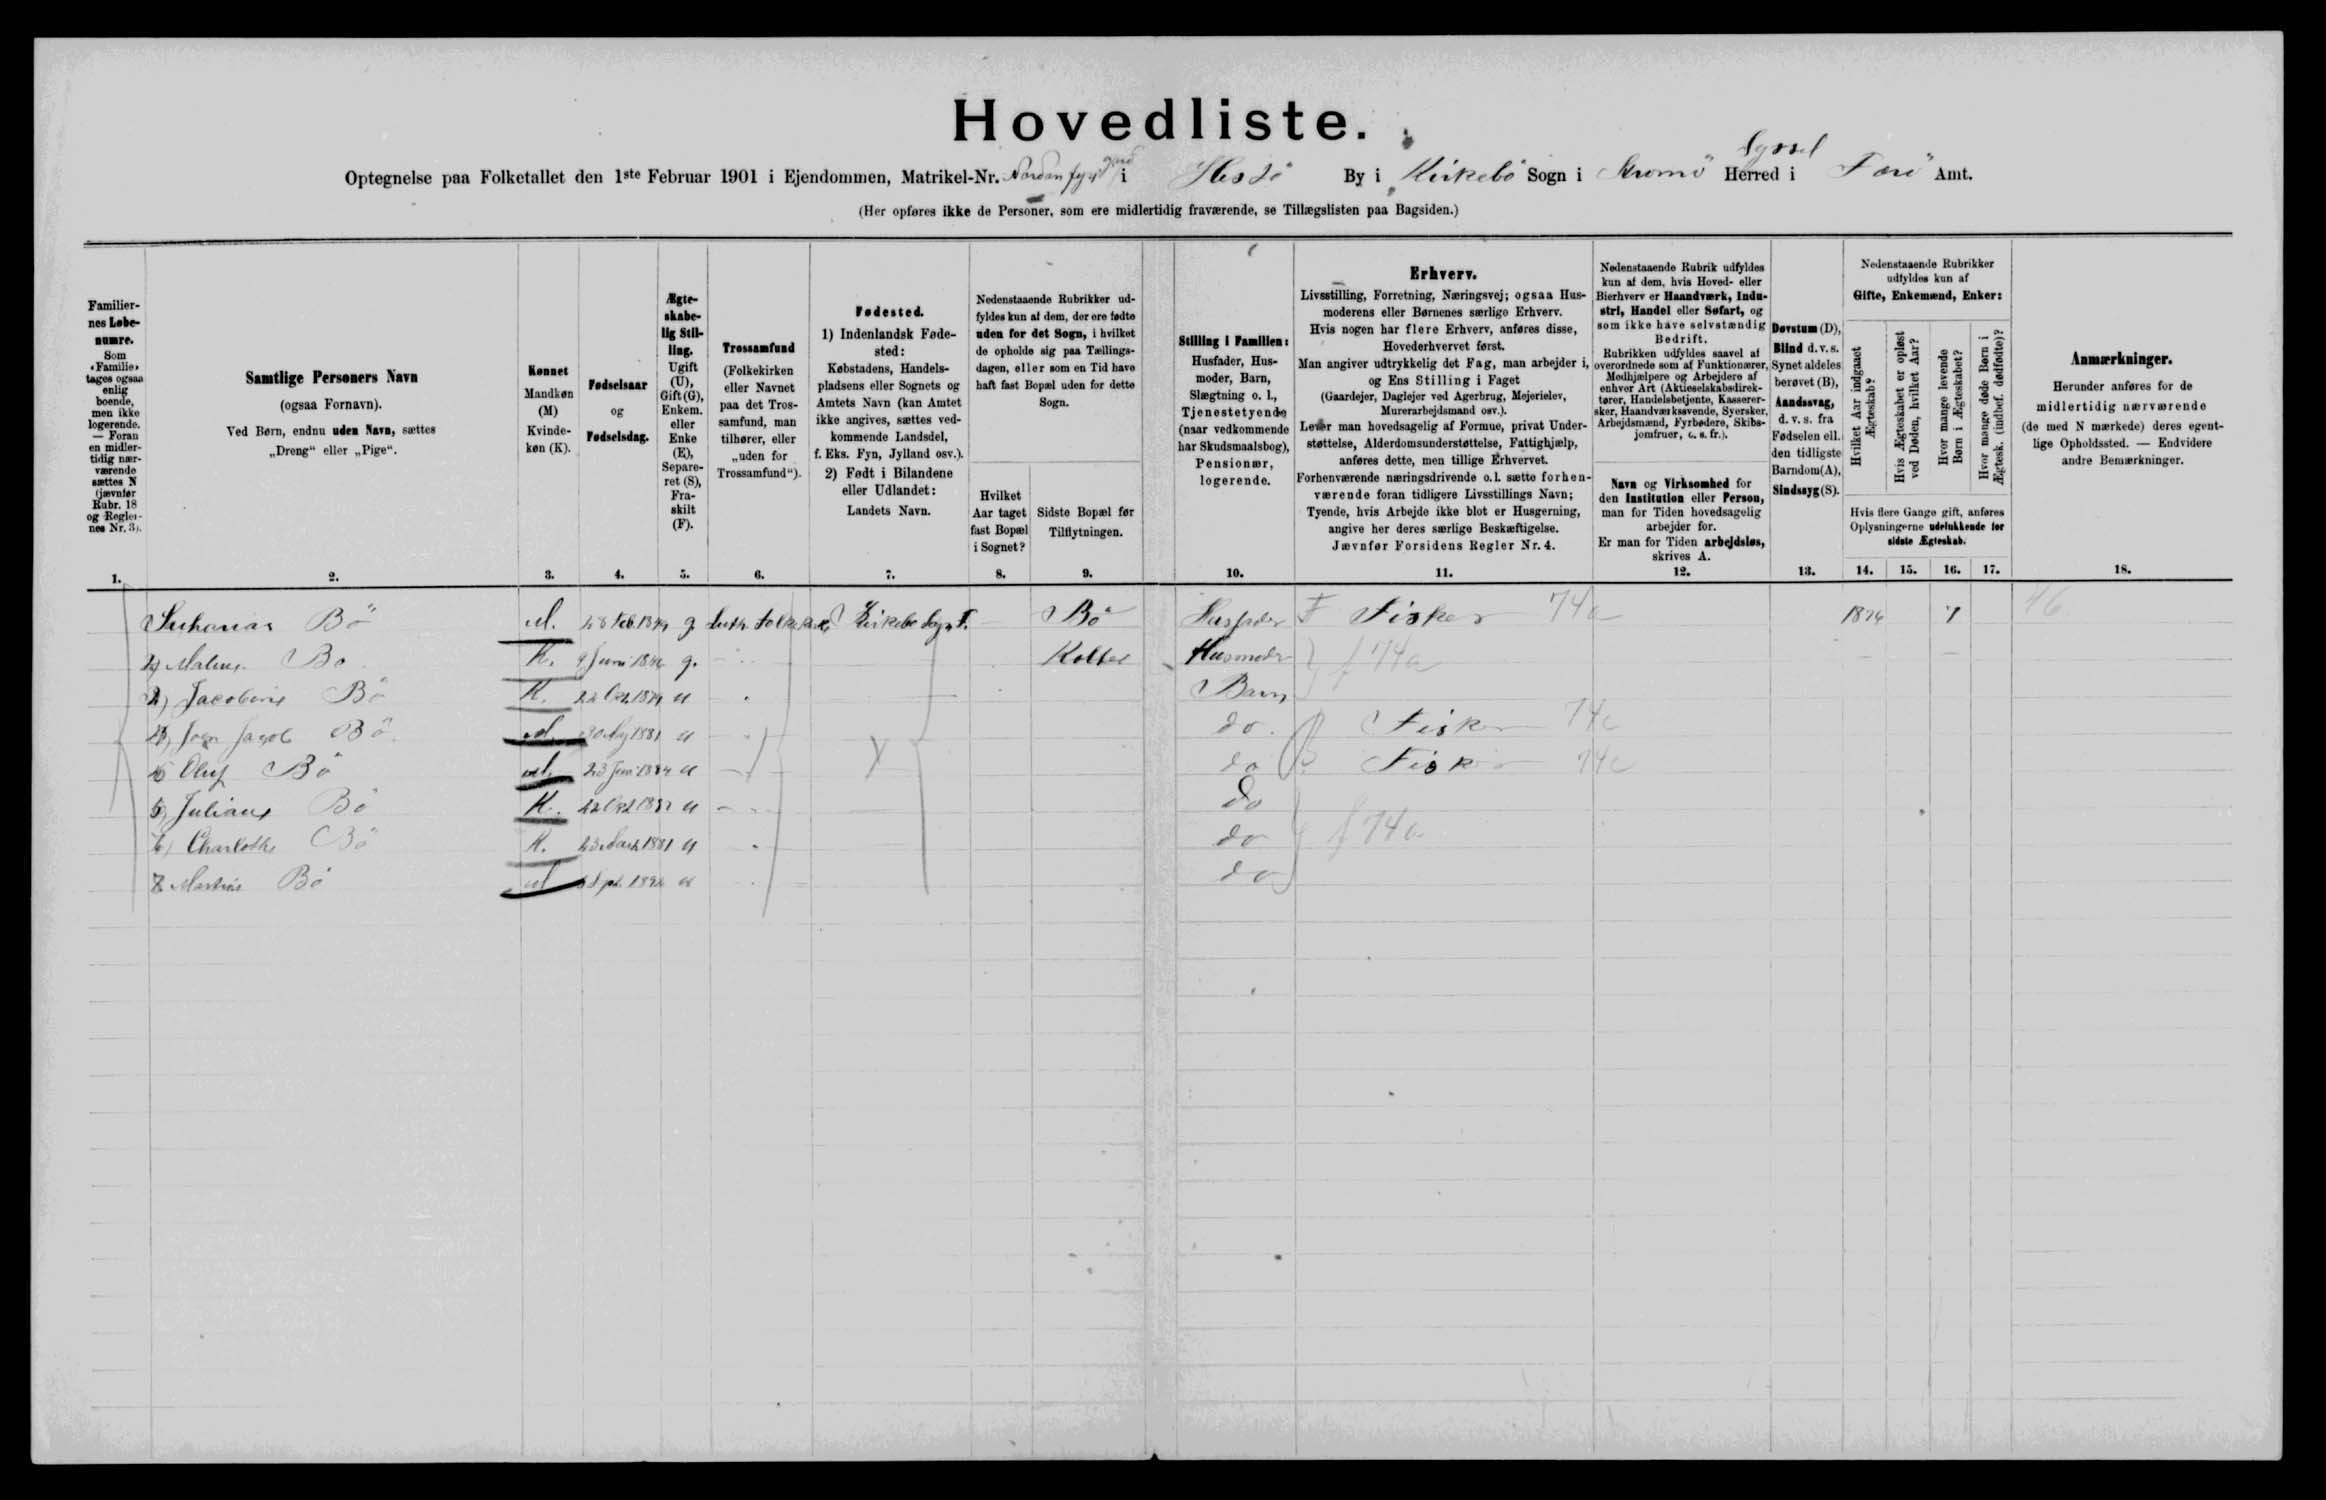 Hovedliste.
Optegnelse paa Folketallet den 1ste Februar 1901 i Ejendommen, Matrikel-Nr. i By i Kirkebö Sogn i Strömö Herred Syssel i Færö Amt.
(Her opføres ikke de Personer, som ere midlertidig fraværende, se Tillægslisten paa Bagsiden.)
Familier-
nes Løbe-
numre.
Som
«Familie»
tages ogsaa
enlig
boende,
men ikke
logerende.
— Foran
en midler-
tidig nær-
værende
sættes N
(jævnfør
Rubr. 18
og Regler-
nes Nr. 3).
1.
Samtlige Personers Navn
(ogsaa Fornavn).
Ved Børn, endnu uden Navn, sættes
„Dreng“ eller „Pige“.
2.
Kønnet
Mandkøn
(M)
Kvinde-
køn (K).
3.
Fødselsaar
og
Fødselsdag.
4.
Ægte-
skabe-
lig Stil-
ling.
Ugift
(U),
Gift (G),
Enkem.
eller
Enke
(E),
Separe-
ret (S),
Fra-
skilt
(F).
5.
Trossamfund
(Folkekirken
eller Navnet
paa det Tros-
samfund, man
tilhører, eller
„uden for
Trossamfund“).
6.
Fødested.
1) Indenlandsk Føde-
sted:
Købstadens, Handels-
pladsens eller Sognets og
Amtets Navn (kan Amtet
ikke angives, sættes ved-
kommende Landsdel,
f. Eks. Fyn, Jylland osv.).
2) Født i Bilandene
eller Udlandet:
Landets Navn.
7.
Nedenstaaende Rubrikker ud-
fyldes kun af dem, der ere fødte
uden for det Sogn, i hvilket
de opholde sig paa Tællings-
dagen, eller som en Tid have
haft fast Bopæl uden for dette
Sogn.
Hvilket
Aar taget
fast Bopæl
i Sognet?
8.
Sidste Bopæl før
Tilflytningen.
9.
Stilling i Familien:
Husfader, Hus-
moder, Barn,
Slægtning o. l.,
Tjenestetyende
(naar vedkommende
har Skudsmaalsbog),
Pensionær,
logerende.
10.
Erhverv.
Livsstilling, Forretning, Næringsvej; ogsaa Hus-
moderens eller Børnenes særlige Erhverv.
Hvis nogen har flere Erhverv, anføres disse,
Hovederhvervet først.
Man angiver udtrykkelig det Fag, man arbejder i,
og Ens Stilling i Faget
(Gaardejer, Daglejer ved Agerbrug, Mejerielev,
Murerarbejdsmand osv.).
Lever man hovedsagelig af Formue, privat Under-
støttelse, Alderdomsunderstøttelse, Fattighjælp,
anføres dette, men tillige Erhvervet.
Forhenværende næringsdrivende o. l. sætte forhen-
værende foran tidligere Livsstillings Navn;
Tyende, hvis Arbejde ikke blot er Husgerning,
angive her deres særlige Beskæftigelse.
Jævnfør Forsidens Regler Nr. 4.
11.
Nedenstaaende Rubrik udfyldes
kun af dem, hvis Hoved- eller
Bierhverv er Haandværk, Indu-
stri, Handel eller Søfart, og
som ikke have selvstændig
Bedrift.
Rubrikken udfyldes saavel af
overordnede som af Funktionærer,
Medhjælpere og Arbejdere af
enhver Art (Aktieselskabsdirek-
tører, Handelsbetjente, Kasserer-
sker, Haandværkssvende, Syersker,
Arbejdsmænd, Fyrbødere, Skibs-
jomfruer, o. s. fr.).
Navn og Virksomhed for
den Institution eller Person,
man for Tiden hovedsagelig
arbejder for.
Er man for Tiden arbejdsløs,
skrives A.
12.
Døvstum (D),
Blind d. v. s.
Synet aldeles
berøvet (B),
Aandssvag,
d. v. s. fra
Fødselen ell.
den tidligste
Barndom (A),
Sindssyg (S).
13.
Nedenstaaende Rubrikker
udfyldes kun af
Gifte, Enkemænd, Enker:
Hvilket Aar indgaaet
Ægteskab?
Hvis Ægteskabet er opløst
ved Døden, hvilket Aar?
Hvor mange levende
Børn i Ægteskabet?
Hvor mange døde Børn i
Ægtesk. (indbef. dødfødte)?
Hvis flere Gange gift, anføres
Oplysningerne udelukkende for
sidste Ægteskab.
14. 15. 16. 17.
Anmærkninger.
Herunder anføres for de
midlertidig nærværende
(de med N mærkede) deres egent-
lige Opholdssted. — Endvidere
andre Bemærkninger.
18.
Bö M. g. Kirkebo Sogn F. Bö Husfader F Fisker 74a 7
Bö K. 9 Juni g. Kolter Husmoder f 74a
Bö K. u Barn
Jacob Bö M. 1881 u do. Fisker 74c
Oluf Bö M. 23 u do Fisker 74c
Juliane Bö K. u do
Charlothe Bö K. u do f 74a
Bö M u do